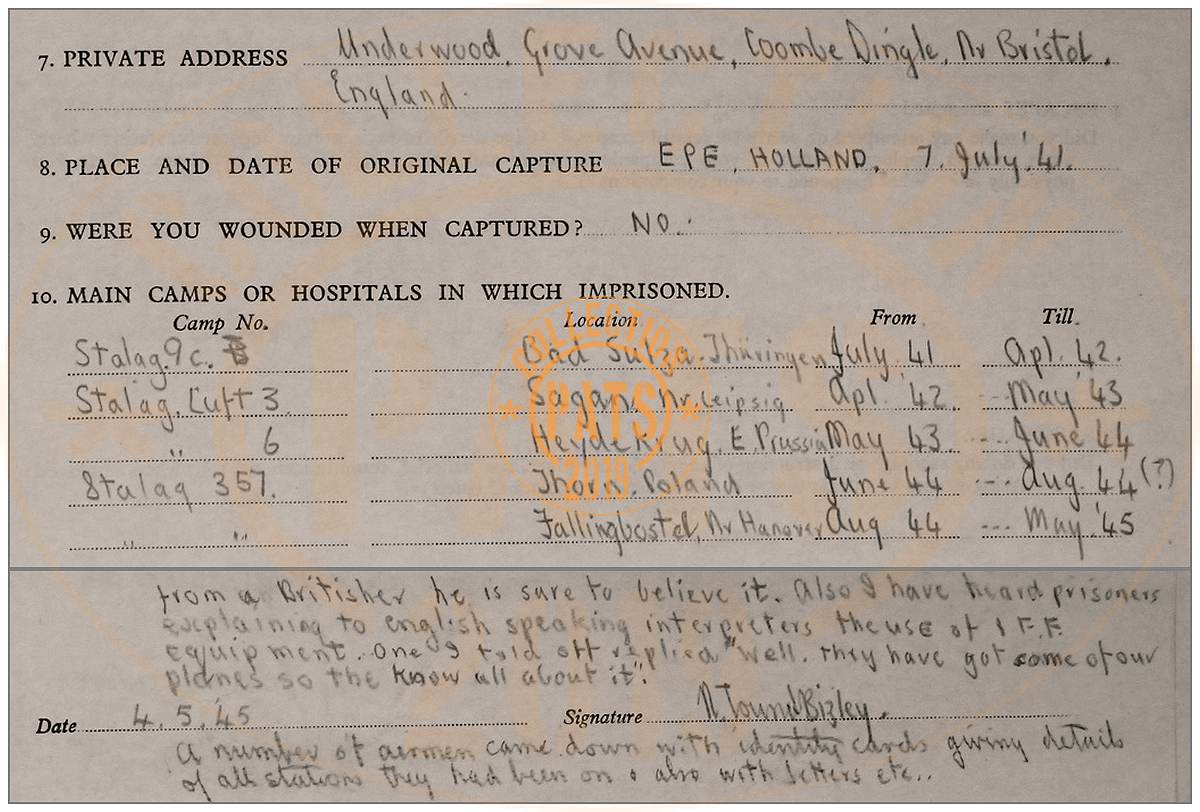 7. PRIVATE ADDRESS Underwood, Grove Avenue, Coombe Dingle, Nr Bristol,
England.
8. PLACE AND DATE OF ORIGINAL CAPTURE EPE, HOLLAND, 7. July '41.
9. WERE YOU WOUNDED WHEN CAPTURED? NO.
10. MAIN CAMPS OR HOSPITALS IN WHICH IMPRISONED.
Camp No. Location From Till
Stalag. 9c. Bad Sulza. Thüringen July '41 Apl. '42.
Stalag. Luft 3. Sagan, Nr. Leipsig Apl. '42. -- May '43
" 6 Heydekrug. E. Prussia May '43. --- June 44
Stalag 357. Thorn. Poland June 44 --- Aug. '44 (?)
" " Fallingbostel, Nr Hanover Aug 44 --- May '45
from a Britisher he is sure to believe it. Also I have heard prisoners
explaining to english speaking interpreters the use of I.F.F.
equipment. One I told off replied "Well. they have got some of our
planes so the know all about it."
Date 4.5.45 Signature Bizley.
A number of airmen came down with identity cards giving details
of all stations they had been on & also with letters etc..
COLLECTION
PATS
2019